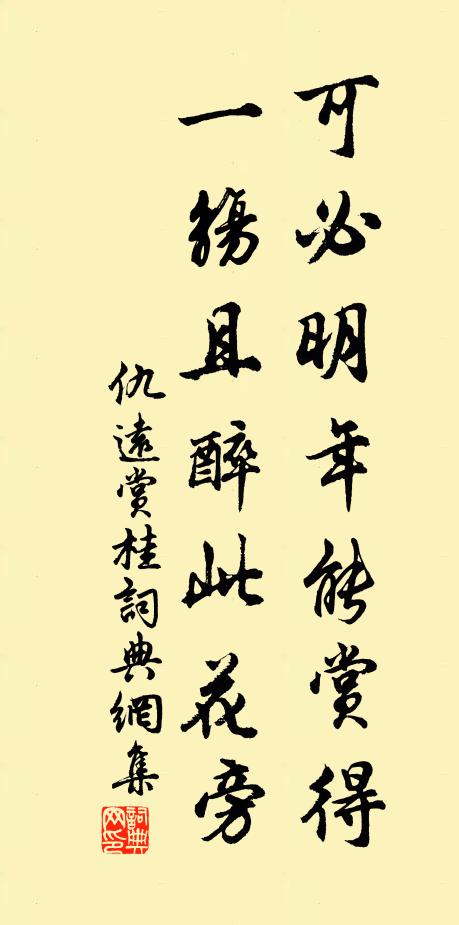 可必明年能賞得
一觴且醉此花旁
仇遠賞桂詞典網集
詞典網印